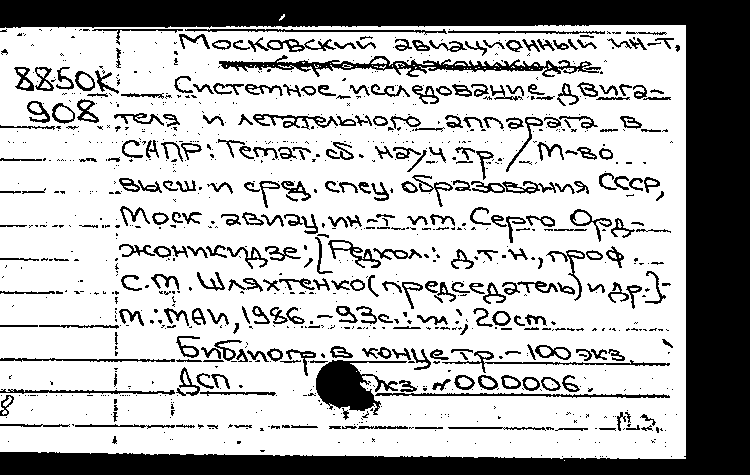 Московский авиационный ин-т.
им. Серго Орджоникидзе
8850К Системное исследование двига-
908 теля и летательного аппарата в
САПР: Темат. сб. науч. тр. / М-во
высш. и сред. спец. образования СССР,
Моск. авиац. ин-т им. Серго Орд-
жоникидзе; [Редкол.: д.т.н., проф.
С.М. Шляхтенко (председатель) и др.]-
М.: МАИ, 1986. - 93с.: ил.; 20см.
Библиогр. в конце тр. - 100 экз.
ДСП. Экз. № 000006.
8 М.З.